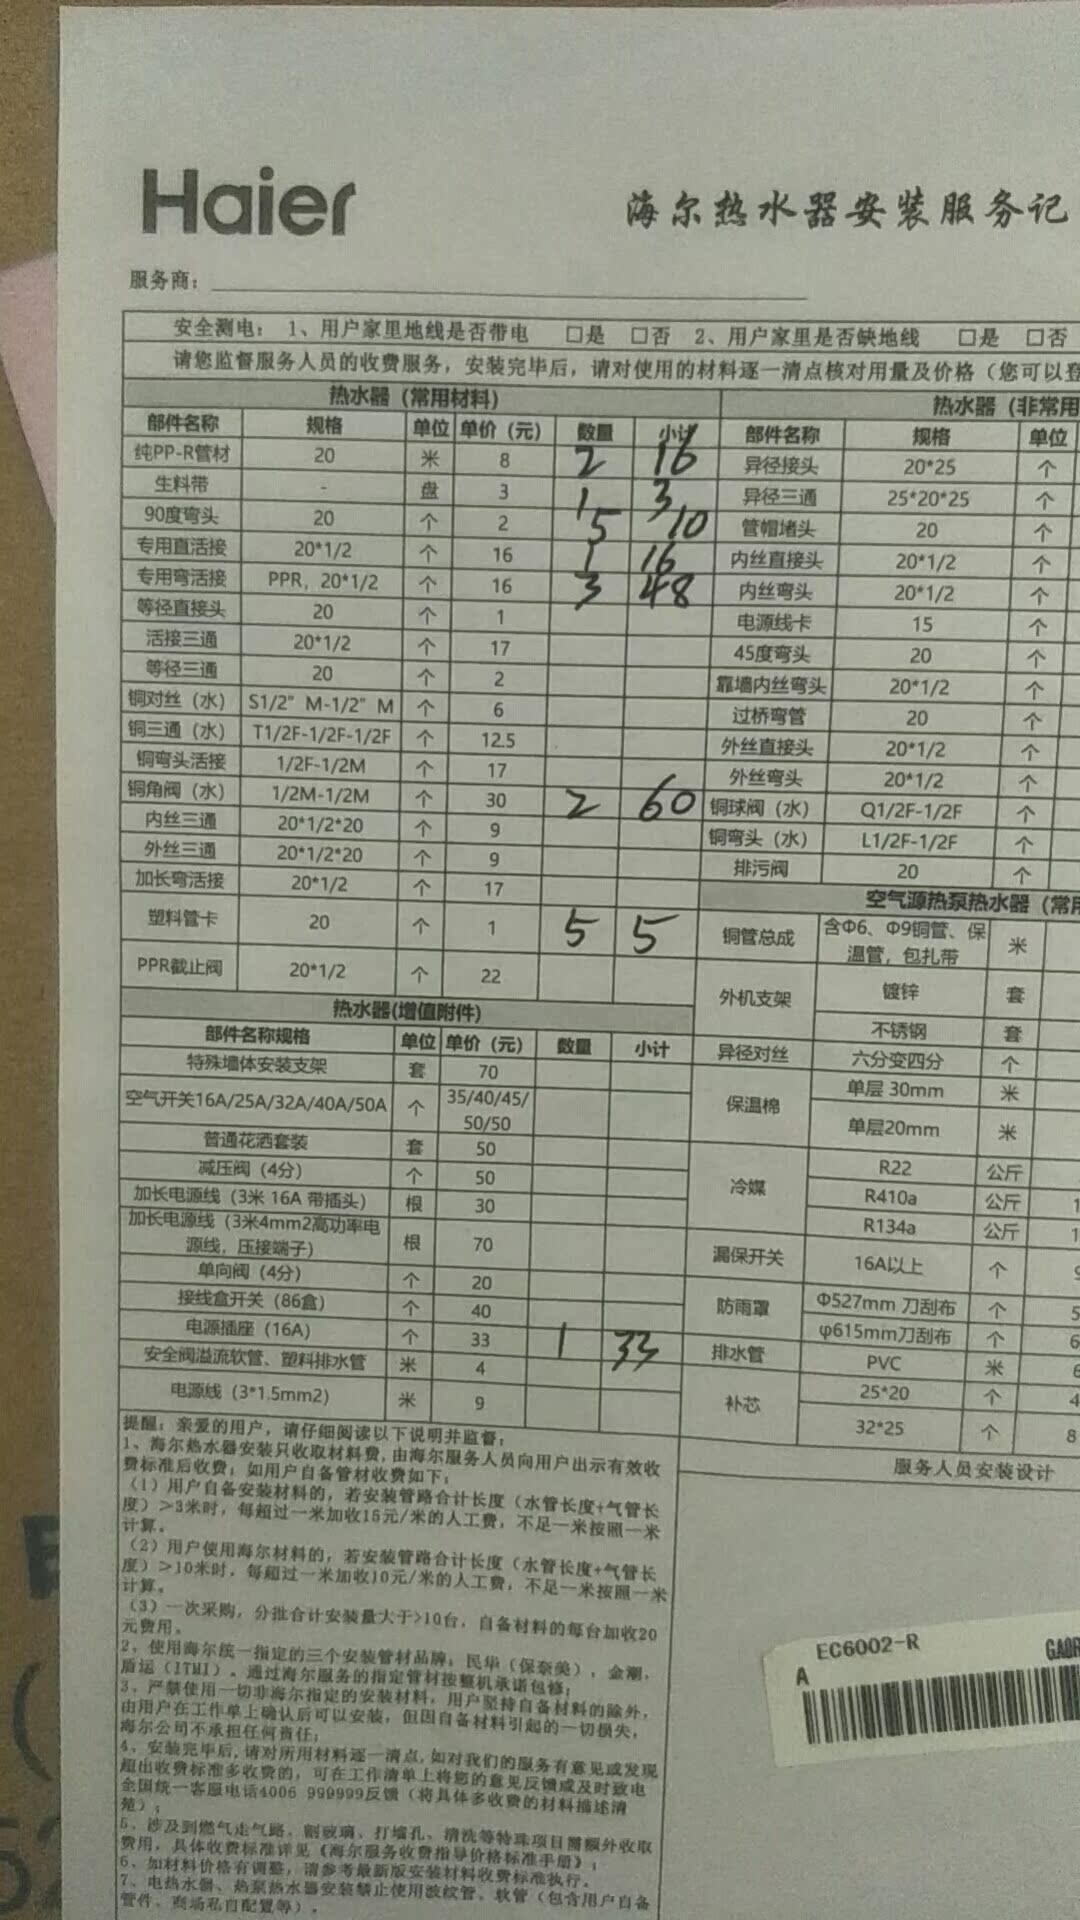 Haier
海尔热水器安装服务记
服务商：
安全测电： 1、用户家里地线是否带电 □是 □否 2、用户家里是否缺地线 □是 □否
请您监督服务人员的收费服务，安装完毕后，请对使用的材料逐一清点核对用量及价格（您可以登
热水器（常用材料） 热水器（非常用
部件名称 规格 单位 单价（元） 数量 小计 部件名称 规格 单位
纯PP-R管材 20 米 8 2 16 异径接头 20*25 个
生料带 - 盘 3 1 3 异径三通 25*20*25 个
90度弯头 20 个 2 5 10 管帽堵头 20 个
专用直活接 20*1/2 个 16 1 16 内丝直接头 20*1/2 个
专用弯活接 PPR，20*1/2 个 16 3 48 内丝弯头 20*1/2 个
等径直接头 20 个 1 电源线卡 15 个
活接三通 20*1/2 个 17 45度弯头 20 个
等径三通 20 个 2 靠墙内丝弯头 20*1/2 个
铜对丝（水） S1/2" M-1/2" M 个 6 过桥弯管 20 个
铜三通（水） T1/2F-1/2F-1/2F 个 12.5 外丝直接头 20*1/2 个
铜弯头活接 1/2F-1/2M 个 17 外丝弯头 20*1/2 个
铜角阀（水） 1/2M-1/2M 个 30 2 60 铜球阀（水） Q1/2F-1/2F 个
内丝三通 20*1/2*20 个 9 铜弯头（水） L1/2F-1/2F 个
外丝三通 20*1/2*20 个 9 排污阀 20 个
加长弯活接 20*1/2 个 17 空气源热泵热水器（常用
塑料管卡 20 个 1 5 5 铜管总成 含Φ6、Φ9铜管、保温管，包扎带 米
PPR截止阀 20*1/2 个 22 外机支架 镀锌 套
热水器(增值附件) 不锈钢 套
部件名称规格 单位 单价（元） 数量 小计 异径对丝 六分变四分 个
特殊墙体安装支架 套 70 保温棉 单层 30mm 米
空气开关16A/25A/32A/40A/50A 个 35/40/45/50/50 单层20mm 米
普通花洒套装 套 50 冷媒 R22 公斤
减压阀（4分） 个 50 R410a 公斤 1
加长电源线（3米 16A 带插头） 根 30 R134a 公斤 1
加长电源线（3米4mm2高功率电源线，压接端子） 根 70 漏保开关 16A以上 个 9
单向阀（4分） 个 20 防雨罩 Φ527mm 刀刮布 个 5
接线盒开关（86盒） 个 40 φ615mm刀刮布 个 6
电源插座（16A） 个 33 1 33 排水管 PVC 米 6
安全阀溢流软管、塑料排水管 米 4 补芯 25*20 个 4
电源线（3*1.5mm2） 米 9 32*25 个 8
服务人员安装设计
提醒：亲爱的用户，请仔细阅读以下说明并监督：
1、海尔热水器安装只收取材料费，由海尔服务人员向用户出示有效收
费标准后收费；如用户自备管材收费如下：
（1）用户自备安装材料的，若安装管路合计长度（水管长度+气管长
度）>3米时，每超过一米加收15元/米的人工费，不足一米按照一米
计算。
（2）用户使用海尔材料的，若安装管路合计长度（水管长度+气管长
度）>10米时，每超过一米加收10元/米的人工费，不足一米按照一米
计算。
（3）一次采购，分批合计安装量大于>10台，自备材料的每台加收20
元费用。
2、使用海尔统一指定的三个安装管材品牌：民华（保奈美）、金潮、
盾运（ITMI）。通过海尔服务的指定管材按整机承诺包修；
3、严禁使用一切非海尔指定的安装材料，用户坚持自备材料的除外，
由用户在工作单上确认后可以安装，但因自备材料引起的一切损失，
海尔公司不承担任何责任；
4、安装完毕后，请对所用材料逐一清点，如对我们的服务有意见或发现
超出收费标准多收费的，可在工作清单上将您的意见反馈或及时致电
全国统一客服电话4006 999999反馈（将具体多收费的材料描述清
楚）；
5、涉及到燃气走气路、割玻璃、打墙孔、清洗等特殊项目需额外收取
费用，具体收费标准详见《海尔服务收费指导价格标准手册》；
6、如材料价格有调整，请参考最新版安装材料收费标准执行。
7、电热水器、热泵热水器安装禁止使用波纹管、软管（包含用户自备
管件、商场私自配置等）。
EC6002-R
A
52